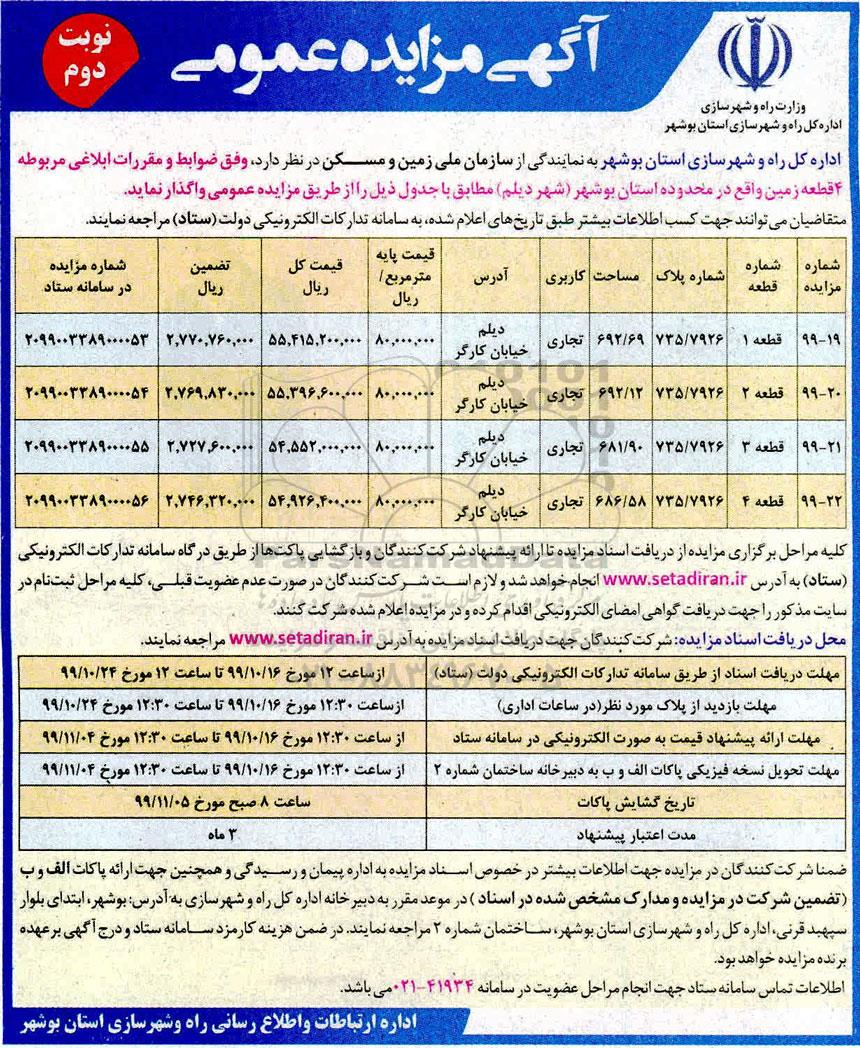 آگهی مزایده عمومی
نوبت
دوم
وزارت راه و شهرسازی
اداره کل راه و شهرسازی استان بوشهر
اداره کل راه و شهرسازی استان بوشهر به نمایندگی از سازمان ملی زمین و مسکن در نظر دارد، وفق ضوابط و مقررات ابلاغی مربوطه
۴قطعه زمین واقع در محدوده استان بوشهر (شهر دیلم) مطابق با جدول ذیل را از طریق مزایده عمومی واگذار نماید.
متقاضیان می‌توانند جهت کسب اطلاعات بیشتر طبق تاریخ‌های اعلام شده، به سامانه تدارکات الکترونیکی دولت (ستاد) مراجعه نمایند.
شماره مزایده | شماره قطعه | شماره پلاک | مساحت | کاربری | آدرس | قیمت پایه مترمربع/ ریال | قیمت کل ریال | تضمین ریال | شماره مزایده در سامانه ستاد
۹۹-۱۹ | قطعه ۱ | ۷۳۵/۷۹۲۶ | ۶۹۲/۶۹ | تجاری | دیلم خیابان کارگر | ۸۰,۰۰۰,۰۰۰ | ۵۵,۴۱۵,۲۰۰,۰۰۰ | ۲,۷۷۰,۷۶۰,۰۰۰ | ۲۰۹۹۰۰۳۳۸۹۰۰۰۰۵۳
۹۹-۲۰ | قطعه ۲ | ۷۳۵/۷۹۲۶ | ۶۹۲/۱۲ | تجاری | دیلم خیابان کارگر | ۸۰,۰۰۰,۰۰۰ | ۵۵,۳۹۶,۶۰۰,۰۰۰ | ۲,۷۶۹,۸۳۰,۰۰۰ | ۲۰۹۹۰۰۳۳۸۹۰۰۰۰۵۴
۹۹-۲۱ | قطعه ۳ | ۷۳۵/۷۹۲۶ | ۶۸۱/۹۰ | تجاری | دیلم خیابان کارگر | ۸۰,۰۰۰,۰۰۰ | ۵۴,۵۵۲,۰۰۰,۰۰۰ | ۲,۷۲۷,۶۰۰,۰۰۰ | ۲۰۹۹۰۰۳۳۸۹۰۰۰۰۵۵
۹۹-۲۲ | قطعه ۴ | ۷۳۵/۷۹۲۶ | ۶۸۶/۵۸ | تجاری | دیلم خیابان کارگر | ۸۰,۰۰۰,۰۰۰ | ۵۴,۹۲۶,۴۰۰,۰۰۰ | ۲,۷۴۶,۳۲۰,۰۰۰ | ۲۰۹۹۰۰۳۳۸۹۰۰۰۰۵۶
کلیه مراحل برگزاری مزایده از دریافت اسناد مزایده تا ارائه پیشنهاد شرکت‌کنندگان و بازگشایی پاکت‌ها از طریق درگاه سامانه تدارکات الکترونیکی
(ستاد) به آدرس www.setadiran.ir انجام خواهد شد و لازم است شرکت‌کنندگان در صورت عدم عضویت قبلی، کلیه مراحل ثبت‌نام در
سایت مذکور را جهت دریافت گواهی امضای الکترونیکی اقدام کرده و در مزایده اعلام شده شرکت کنند.
محل دریافت اسناد مزایده: شرکت‌کنندگان جهت دریافت اسناد مزایده به آدرس www.setadiran.ir مراجعه نمایند.
مهلت دریافت اسناد از طریق سامانه تدارکات الکترونیکی دولت (ستاد) | ازساعت ۱۲ مورخ ۹۹/۱۰/۱۶ تا ساعت ۱۲ مورخ ۹۹/۱۰/۲۴
مهلت بازدید از پلاک مورد نظر(در ساعات اداری) | ازساعت ۱۲:۳۰ مورخ ۹۹/۱۰/۱۶ تا ساعت ۱۲:۳۰ مورخ ۹۹/۱۰/۲۴
مهلت ارائه پیشنهاد قیمت به صورت الکترونیکی در سامانه ستاد | از ساعت ۱۲:۳۰ مورخ ۹۹/۱۰/۱۶ تا ساعت ۱۲:۳۰ مورخ ۹۹/۱۱/۰۴
مهلت تحویل نسخه فیزیکی پاکات الف و ب به دبیرخانه ساختمان شماره ۲ | از ساعت ۱۲:۳۰ مورخ ۹۹/۱۰/۱۶ تا ساعت ۱۲:۳۰ مورخ ۹۹/۱۱/۰۴
تاریخ گشایش پاکات | ساعت ۸ صبح مورخ ۹۹/۱۱/۰۵
مدت اعتبار پیشنهاد | ۳ ماه
ضمنا شرکت‌کنندگان در مزایده جهت اطلاعات بیشتر در خصوص اسناد مزایده به اداره پیمان و رسیدگی و همچنین جهت ارائه پاکات الف و ب
(تضمین شرکت در مزایده و مدارک مشخص شده در اسناد) در موعد مقرر به دبیرخانه اداره کل راه و شهرسازی به آدرس: بوشهر، ابتدای بلوار
سپهبد قرنی، اداره کل راه و شهرسازی استان بوشهر، ساختمان شماره ۲ مراجعه نمایند. در ضمن هزینه کارمزد سامانه ستاد و درج آگهی برعهده
برنده مزایده خواهد بود.
اطلاعات تماس سامانه ستاد جهت انجام مراحل عضویت در سامانه ۴۱۹۳۴-۰۲۱ می باشد.
اداره ارتباطات و اطلاع رسانی راه وشهرسازی استان بوشهر
ParsNamadData